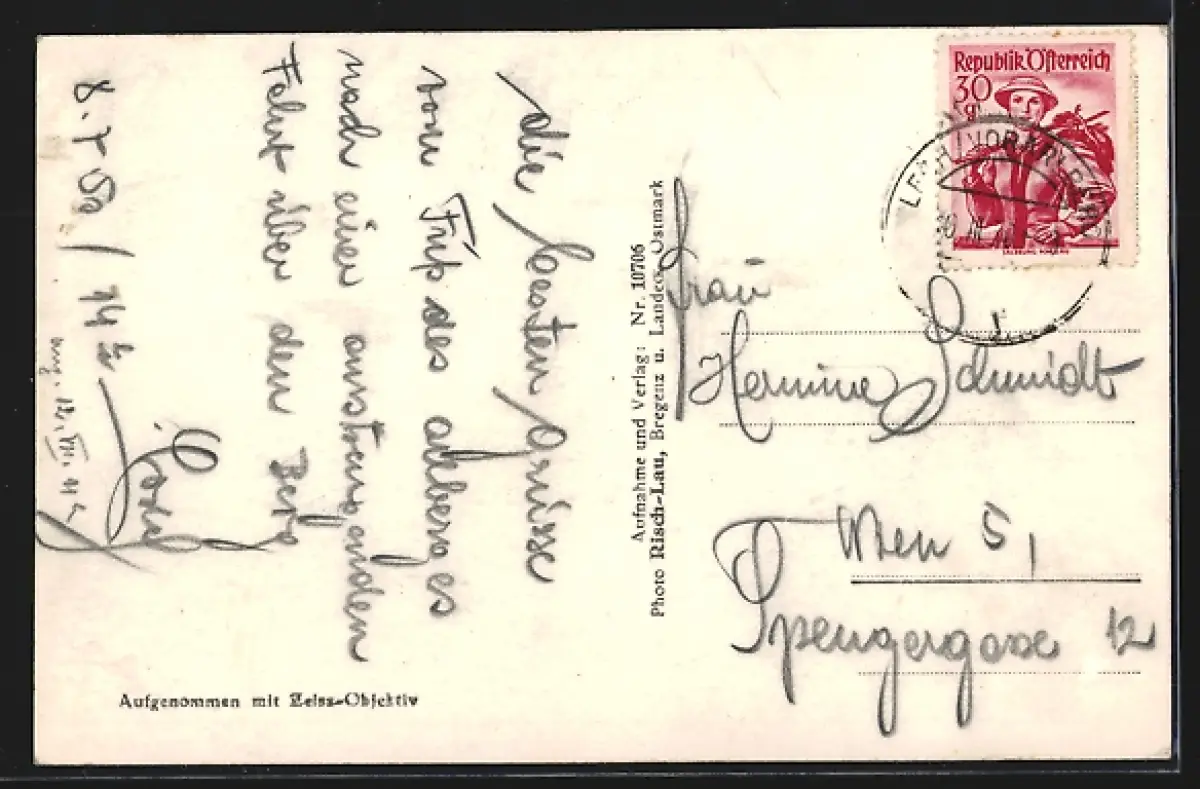 die besten Grüsse
vom Fuß des Arlberges
nach einer anstrengenden
Fahrt über den Berg
8.7.50 / 14 h
ang. 12. VII. 11 h
Aufgenommen mit Zeiss-Objektiv
Aufnahme und Verlag: Nr. 10706
Photo Risch-Lau, Bregenz u. Landeck, Ostmark
Republik Österreich
30
g
LECH (VORARLBERG)
Frau
Hermine Schmidt
Wien 5,
Spengergasse 12